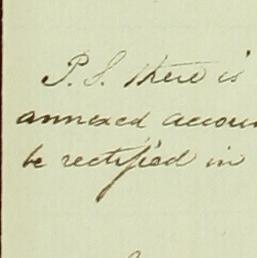 P.S. there is
annexed accoun
be rectified in